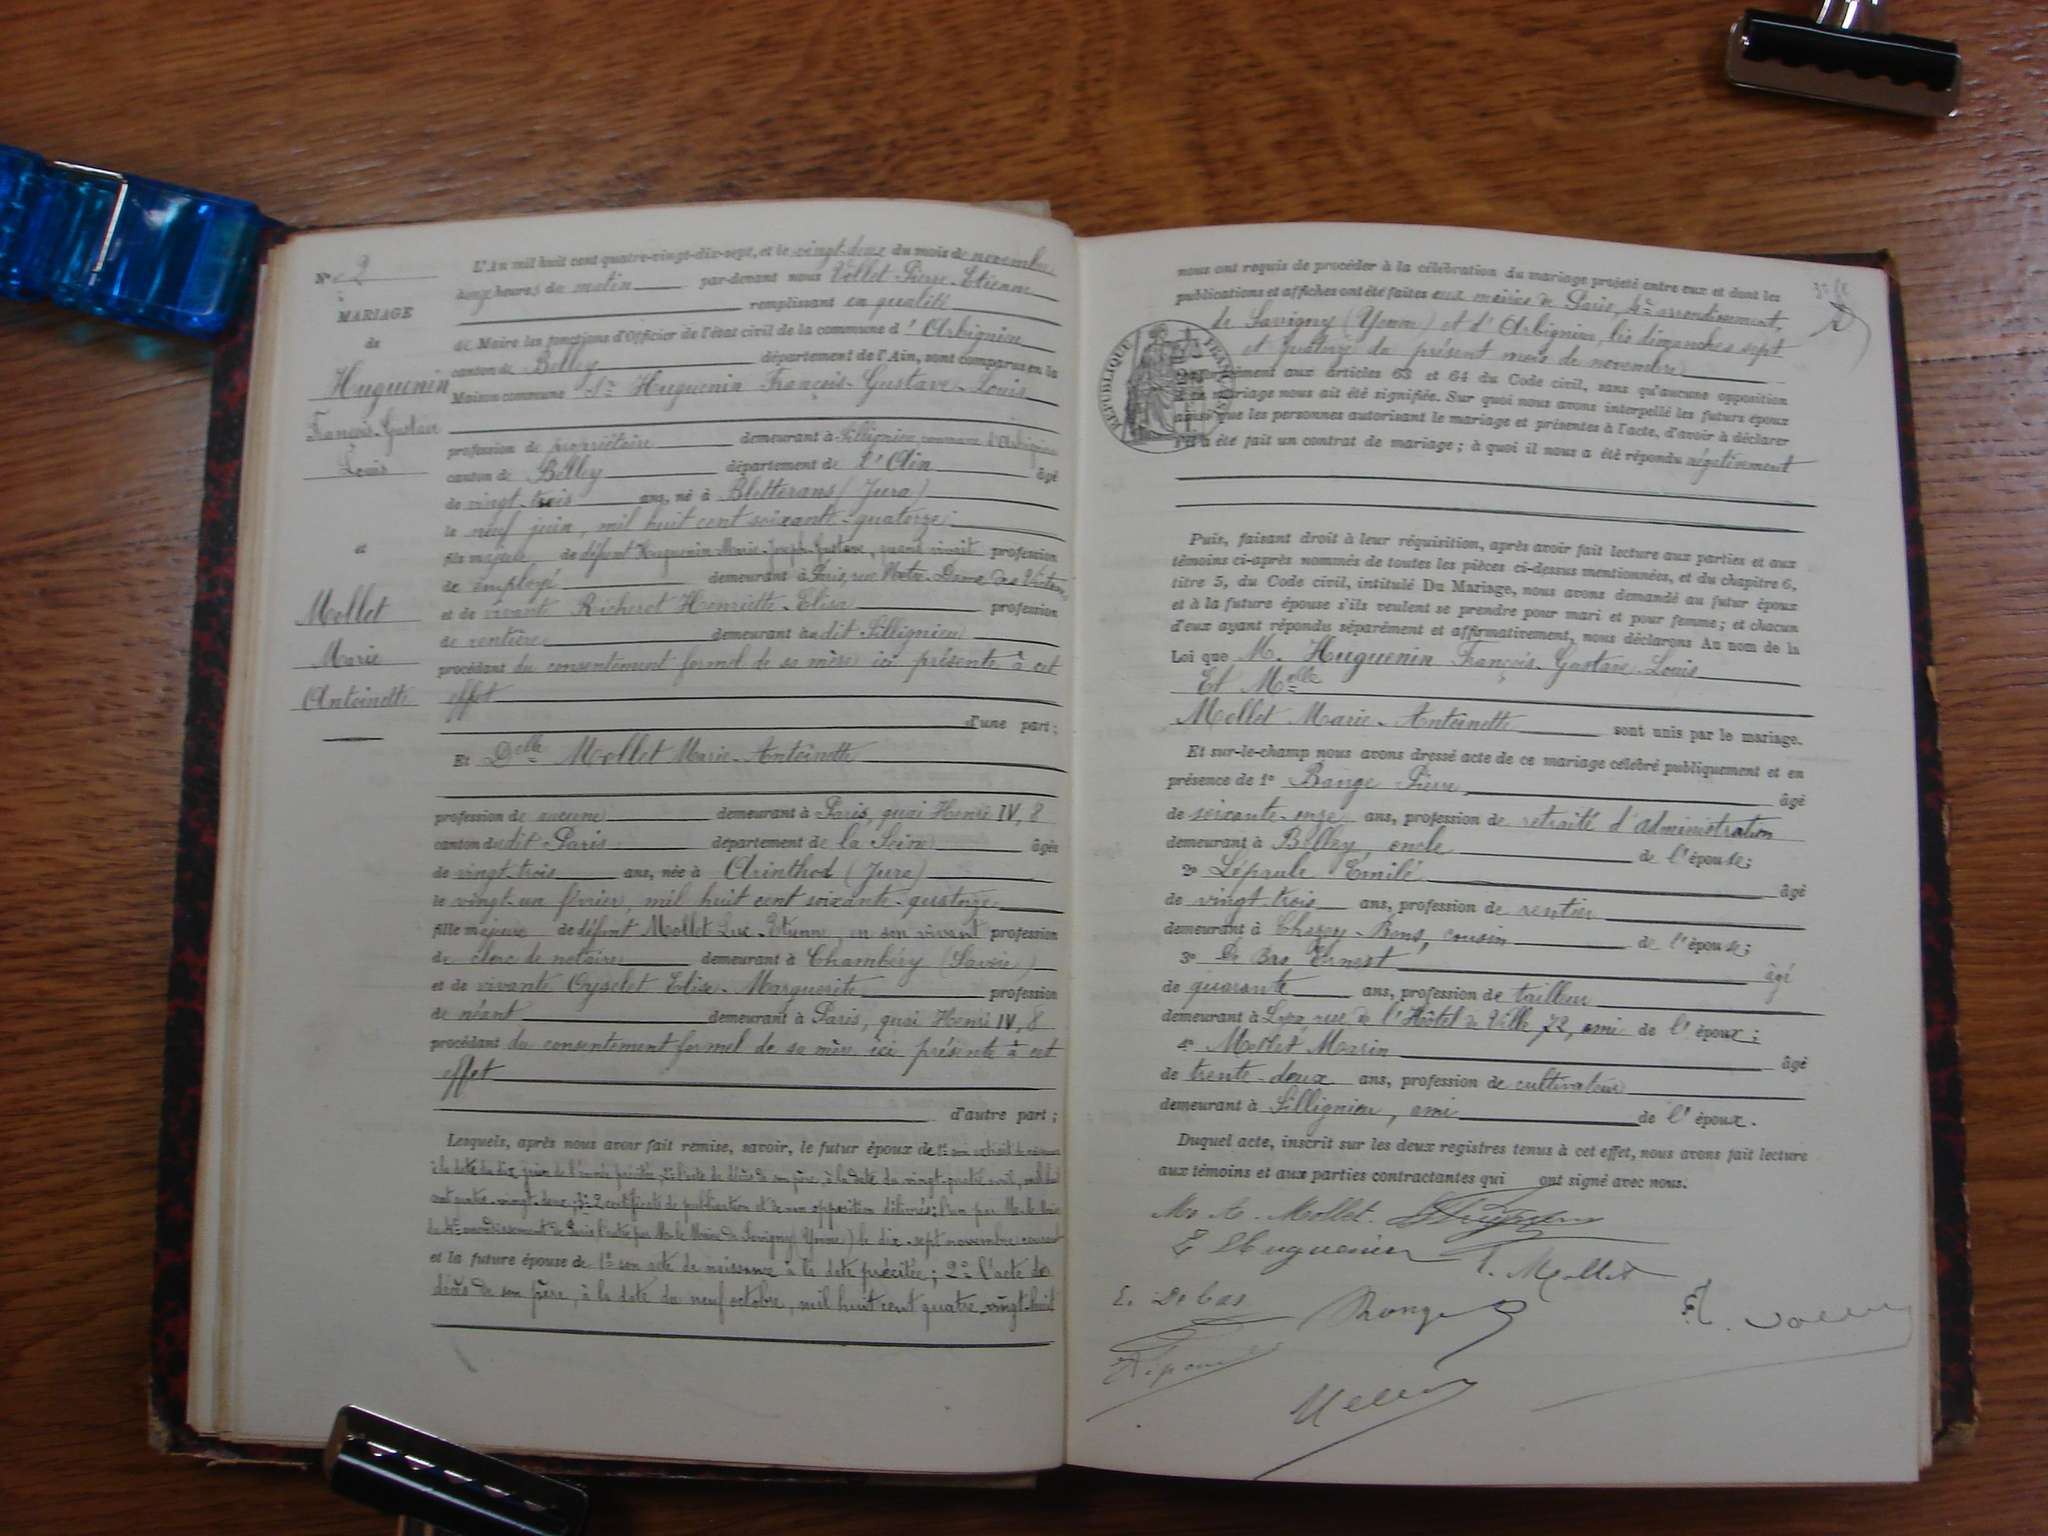 N° 2
MARIAGE
de
Huguenin
François-Gustave
Louis
et
Mollet
Marie
Antoinette
L'An mil huit cent quatre-vingt-dix-sept, et le vingt-deux du mois de novembre
heures du matin par-devant nous Vollet Pierre-Etienne
remplissant en qualité
de Maire les fonctions d'Officier de l'état civil de la commune d'Arbignieu
canton de Belley département de l'Ain, sont comparus en la
Maison commune Sr Huguenin François-Gustave-Louis
profession de propriétaire demeurant à Sillignieu, commune d'Arbignieu
canton de Belley département de l'Ain âgé
de vingt-trois ans, né à Bletterans (Jura)
le neuf juin, mil huit cent soixante-quatorze
fils majeur de défunt Huguenin Marie-Joseph-Gustave, quand vivait profession
de employé demeurant à Paris, rue Notre-Dame des Victoires
et de vivante Richerot Henriette-Elisa profession
de rentière demeurant au dit Sillignieu
procédant du consentement formel de sa mère ici présente à cet
effet
d'une part;
Et Delle Mollet Marie-Antoinette
profession de aucune demeurant à Paris, quai Henri IV, 8
canton dudit Paris département de la Seine âgée
de vingt-trois ans, née à Arinthod (Jura)
le vingt-un février, mil huit cent soixante-quatorze
fille majeure de défunt Mollet Luc-Etienne, en son vivant profession
de clerc de notaire demeurant à Chambéry (Savoie)
et de vivante Oyselet Elise-Marguerite profession
de néant demeurant à Paris, quai Henri IV, 8
procédant du consentement formel de sa mère ici présente à cet
effet
d'autre part;
Lesquels, après nous avoir fait remise, savoir, le futur époux de 1° son extrait de naissance
à la date du dix juin de l'année précitée, 2° l'acte de décès de son père, à la date du vingt-quatre avril, mil huit
cent quatre-vingt-deux; 3° 2 certificats de publication et de non opposition délivrés: l'un par Mr le Maire
du 4e arrondissement de Paris l'autre par Mr le Maire de Savigny (Yonne) le dix-sept novembre courant
et la future épouse de 1° son acte de naissance à la date précitée; 2° l'acte de
décès de son père, à la date du neuf octobre, mil huit cent quatre-vingt-huit
nous ont requis de procéder à la célébration du mariage projeté entre eux et dont les
publications et affiches ont été faites aux mairies de Paris, 4e arrondissement,
de Savigny (Yonne) et d'Arbignieu, les dimanches sept
et quatorze du présent mois de novembre
RÉPUBLIQUE FRANÇAISE
Conformément aux articles 63 et 64 du Code civil, sans qu'aucune opposition
à ce mariage nous ait été signifiée. Sur quoi nous avons interpellé les futurs époux
ainsi que les personnes autorisant le mariage et présentes à l'acte, d'avoir à déclarer
s'il a été fait un contrat de mariage; à quoi il nous a été répondu négativement
Puis, faisant droit à leur réquisition, après avoir fait lecture aux parties et aux
témoins ci-après nommés de toutes les pièces ci-dessus mentionnées, et du chapitre 6,
titre 5, du Code civil, intitulé Du Mariage, nous avons demandé au futur époux
et à la future épouse s'ils veulent se prendre pour mari et pour femme; et chacun
d'eux ayant répondu séparément et affirmativement, nous déclarons Au nom de la
Loi que M. Huguenin François-Gustave-Louis
Et Melle
Mollet Marie-Antoinette sont unis par le mariage.
Et sur-le-champ nous avons dressé acte de ce mariage célébré publiquement et en
présence de 1° Ronge Pierre âgé
de soixante-onze ans, profession de retraité d'administration
demeurant à Belley, oncle de l'épouse;
2° Lépaule Emile âgé
de vingt-trois ans, profession de rentier
demeurant à Chazey-Bons, cousin de l'épouse;
3° Ernest âgé
de quarante ans, profession de tailleur
demeurant à Lyon rue de l'Hôtel de Ville 72, ami de l'époux;
4° Mollet Marin âgé
de trente-deux ans, profession de cultivateur
demeurant à Sillignieu, ami de l'époux.
Duquel acte, inscrit sur les deux registres tenus à cet effet, nous avons fait lecture
aux témoins et aux parties contractantes qui ont signé avec nous.
M. A. Mollet
E Huguenin
Mollet
E. Debas
Ronge